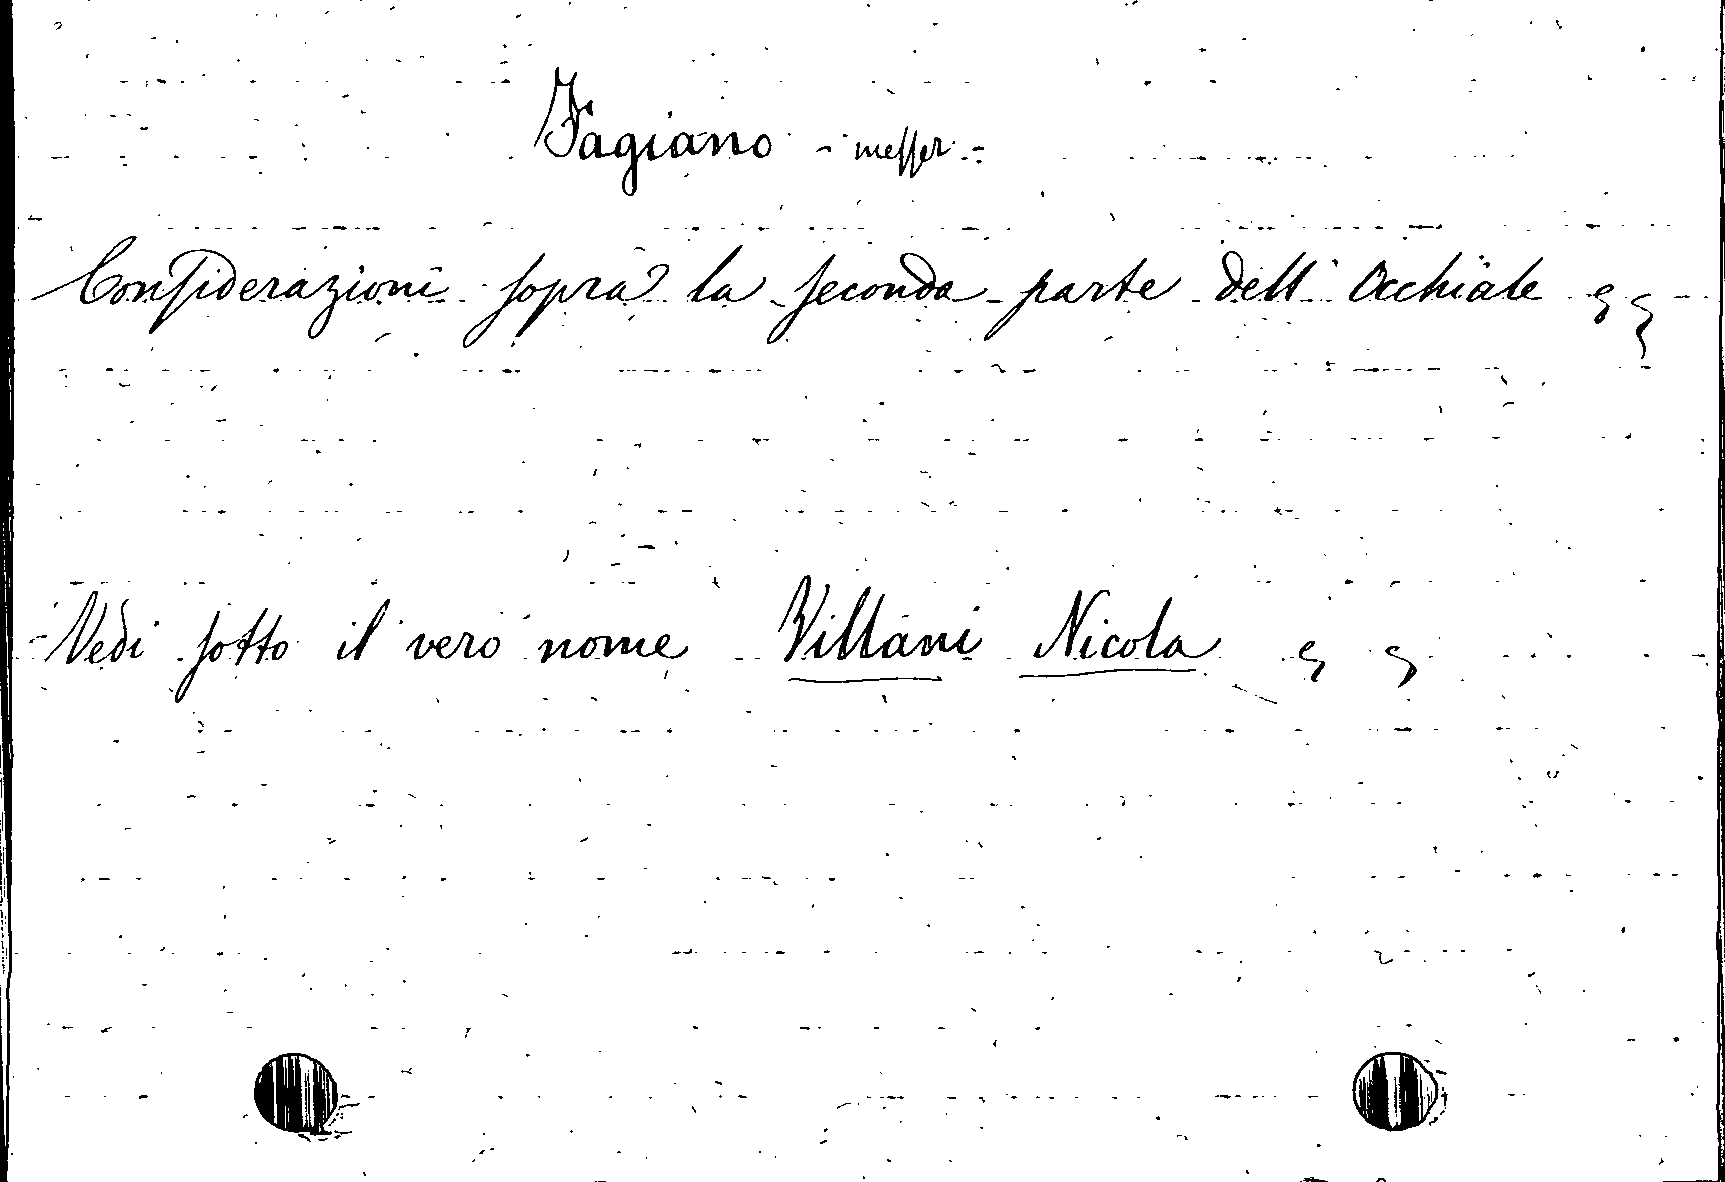 Fagiano - messer -
Considerazioni sopra la seconda parte dell'Occhiale
Vedi sotto il vero nome Villani Nicola